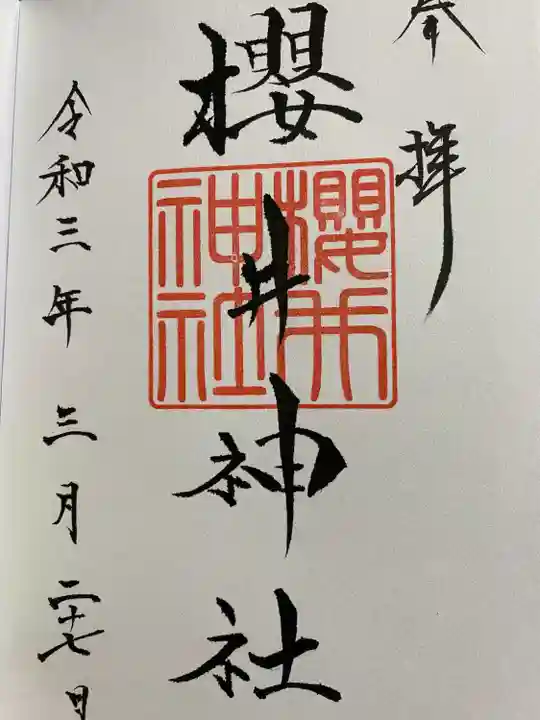 奉拝
櫻井神社
櫻井
神社
令和三年 三月二十七日